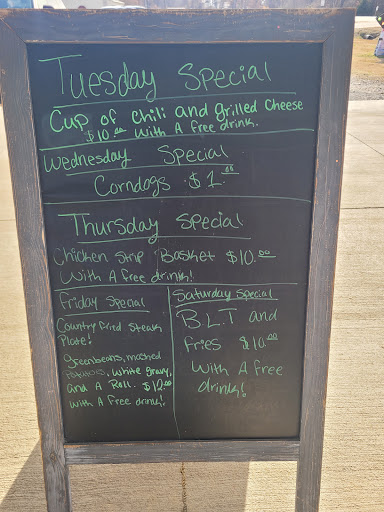 Tuesday Special
Cup of chili and grilled cheese
$10.00 with A free drink.
Wednesday Special
Corndogs $1.00
Thursday Special
Chicken Strip Basket $10.00
With A free drink!
Friday Special
Country fried Steak
Plate!
Greenbeans, mashed
Potatoes, white gravy,
and A Roll. $12.00
with A free drink!
Saturday Special
B.L.T and
fries $10.00
with A free
drink!